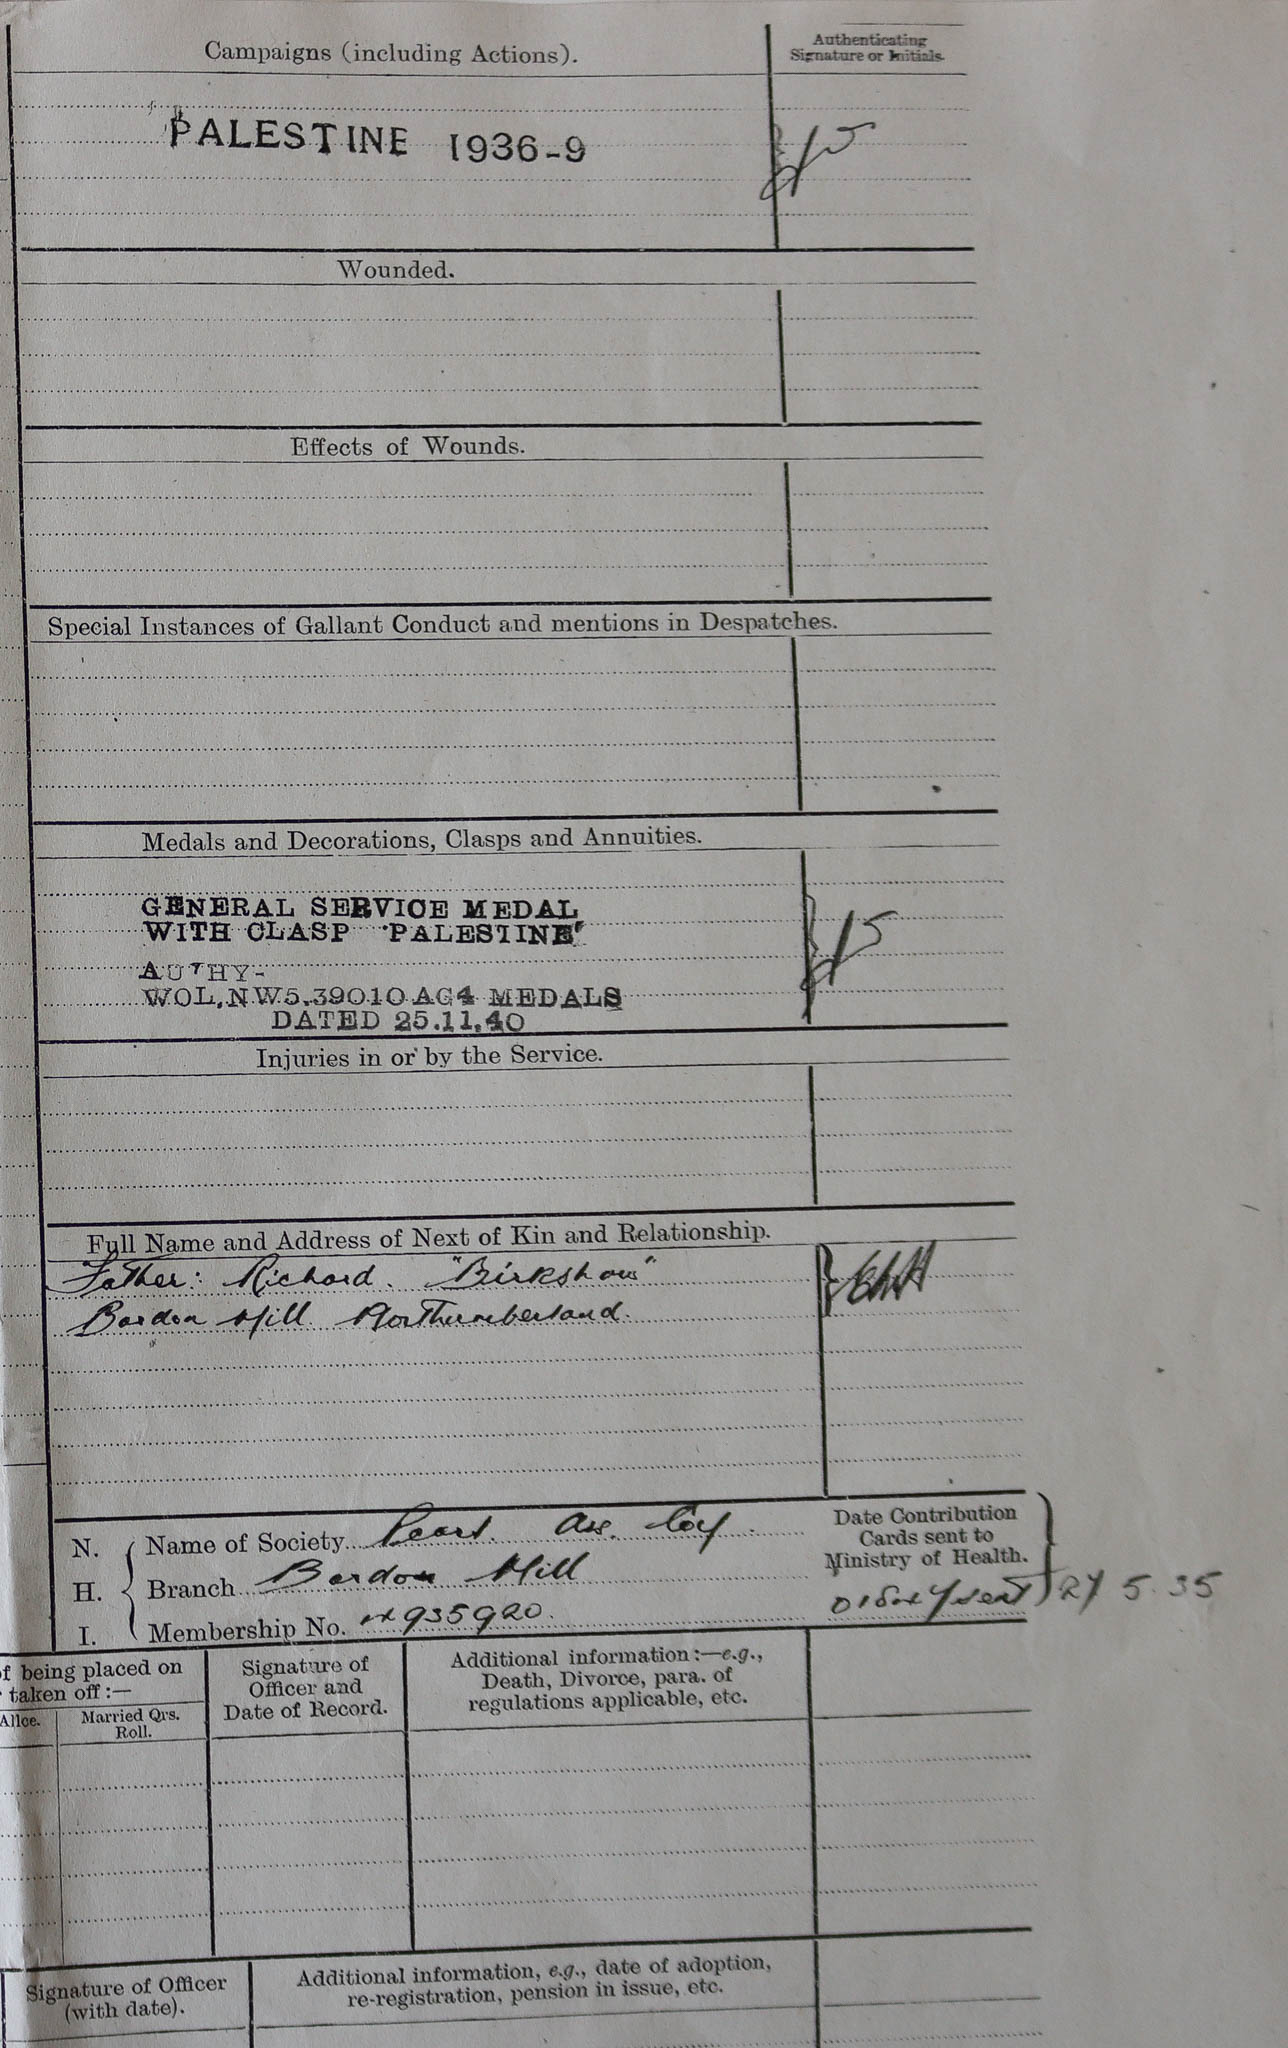 Campaigns (including Actions).
Authenticating
Signature or Initials.
PALESTINE 1936-9
Wounded.
Effects of Wounds.
Special Instances of Gallant Conduct and mentions in Despatches.
Medals and Decorations, Clasps and Annuities.
GENERAL SERVICE MEDAL
WITH CLASP "PALESTINE"
AUTHY-
WOL, NW5.39010 AG4 MEDALS
DATED 25.11.40
Injuries in or by the Service.
Full Name and Address of Next of Kin and Relationship.
Father: Richard. "Birkshaw"
Bardon Mill. Northumberland.
N. H. I.
Name of Society Pearl. Ass. Coy.
Branch Bardon Mill
Membership No. 935920.
Date Contribution
Cards sent to
Ministry of Health.
sent 27 5.35
f being placed on
taken off:—
Allce.
Married Qrs.
Roll.
Signature of
Officer and
Date of Record.
Additional information:—e.g.,
Death, Divorce, para. of
regulations applicable, etc.
Signature of Officer
(with date).
Additional information, e.g., date of adoption,
re-registration, pension in issue, etc.